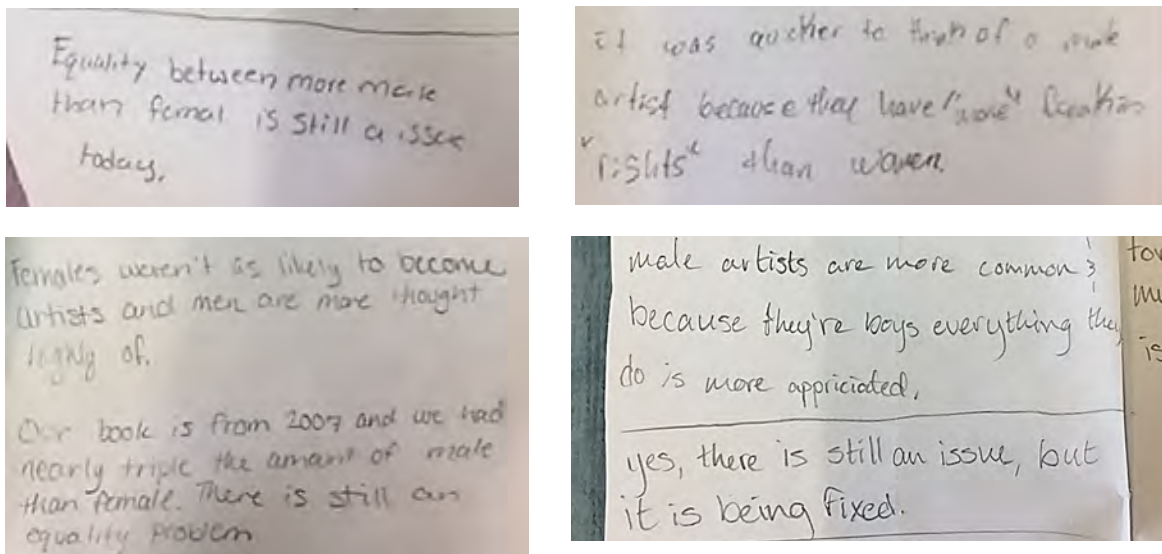 Equality between more male
than femal is still a issue
today.
it was to think of a male
artist because they have "more"
"rights" than women.
Females weren't as likely to become
artists and men are more thought
highly of.
Our book is from 2007 and we had
nearly triple the amount of male
than female. There is still an
equality problem
male artists are more common
because they're boys everything they
do is more appriciated.
yes, there is still an issue, but
it is being fixed.
tow
is